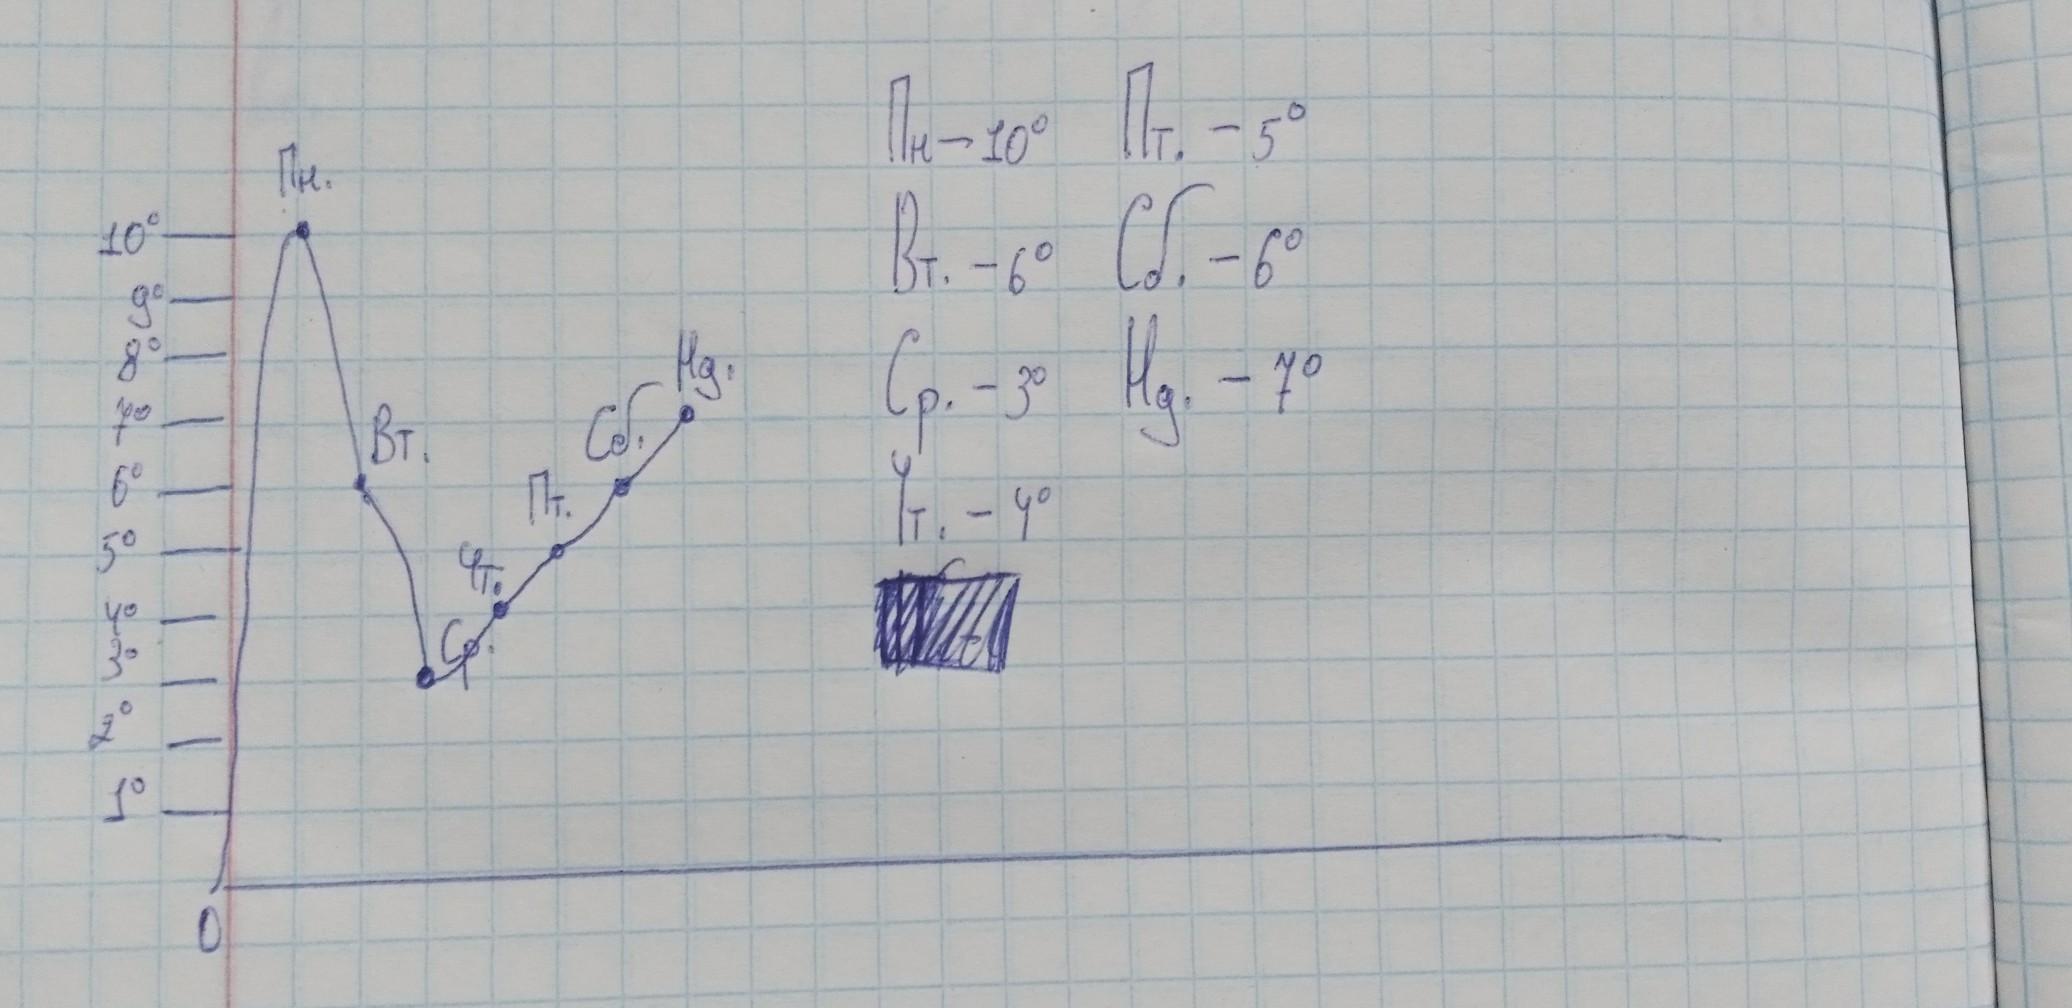 Пн.
10°
9°
8°
7°
6°
5°
4°
3°
2°
1°
0
Вт.
Ср.
Чт.
Пт.
Сб.
Нд.
Пн – 10° Пт. – 5°
Вт. – 6° Сб. – 6°
Ср. – 3° Нд. – 7°
Чт. – 4°